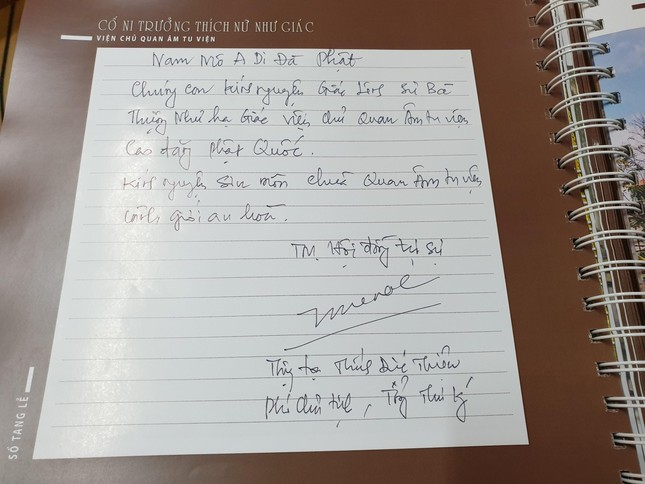 CỐ NI TRƯỞNG THÍCH NỮ NHƯ GIÁC
VIỆN CHỦ QUAN ÂM TU VIỆN
Nam Mô A Di Đà Phật
Chúng con kính nguyện Giác Linh Sư Bà
Thượng Như hạ Giác viện chủ Quan Âm tu viện
Cao đăng Phật Quốc.
Kính nguyện Sơn môn chùa Quan Âm tu viện
cảnh giới an hoà.
TM. Hội đồng trị sự
Thượng tọa Thích Đức Thiện
Phó chủ tịch, Tổng Thư Ký
SỔ TANG LỄ